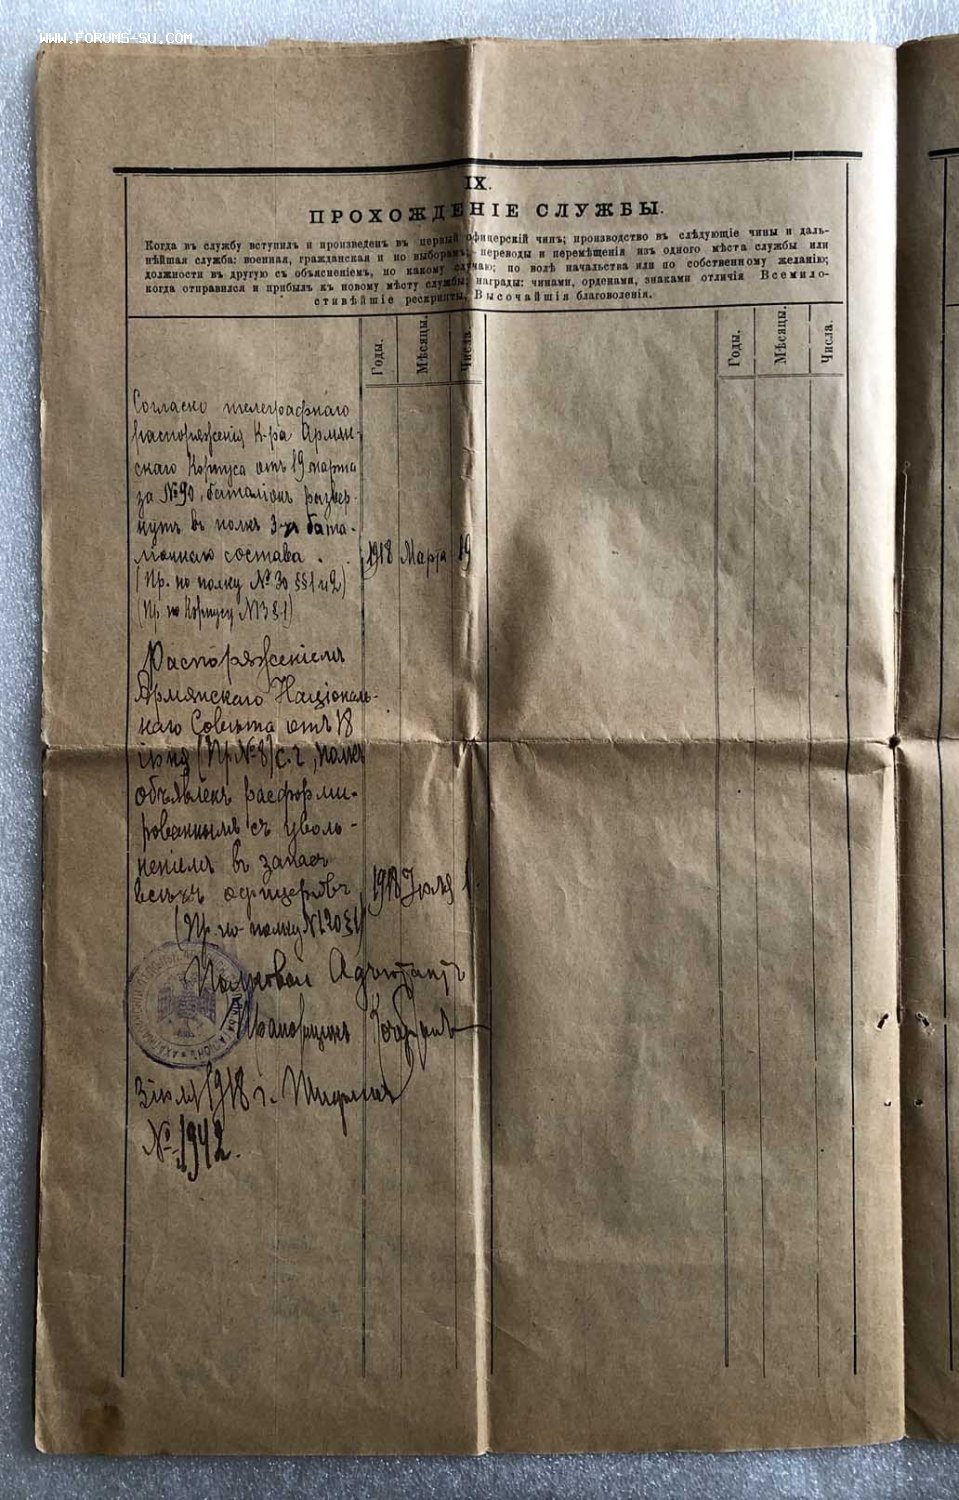 www.forums-su.com
IX.
ПРОХОЖДЕНІЕ СЛУЖБЫ.
Когда въ службу вступилъ и произведенъ въ первый офицерскій чинъ; производство въ слѣдующіе чины и даль-
нѣйшая служба: военная, гражданская и по выборамъ; переводы и перемѣщенія изъ одного мѣста службы или
должности въ другую съ объясненіемъ, по какому случаю; по волѣ начальства или по собственному желанію;
когда отправился и прибылъ къ новому мѣсту службы; награды: чинами, орденами, знаками отличія Всемило-
стивѣйшіе рескрипты, Высочайшія благоволенія.
Годы. Мѣсяцы. Числа. Годы. Мѣсяцы. Числа.
Согласно телеграфнаго
распоряженія К-ра Армян-
скаго Корпуса отъ 19 марта
за №90, баталіонъ развер-
нутъ въ полкъ 3-хъ бата-
ліоннаго состава. 1918 Марта 19
(Пр. по полку № 30 §§ 1 и 2)
(Пр по Корпусу №13 §1)
Распоряженіемъ
Армянскаго Націоналъ-
наго Совѣта отъ 18
іюня (Пр. №8) с.г., полкъ
объявленъ расформи-
рованнымъ съ уволь-
неніемъ въ запасъ
всѣхъ офицеровъ 1918 Іюля 1.
(Пр. по полку №120 §1)
Полковой Адъютантъ
Прапорщикъ
3 іюля 1918 г. Тифлисъ
№ 1942.